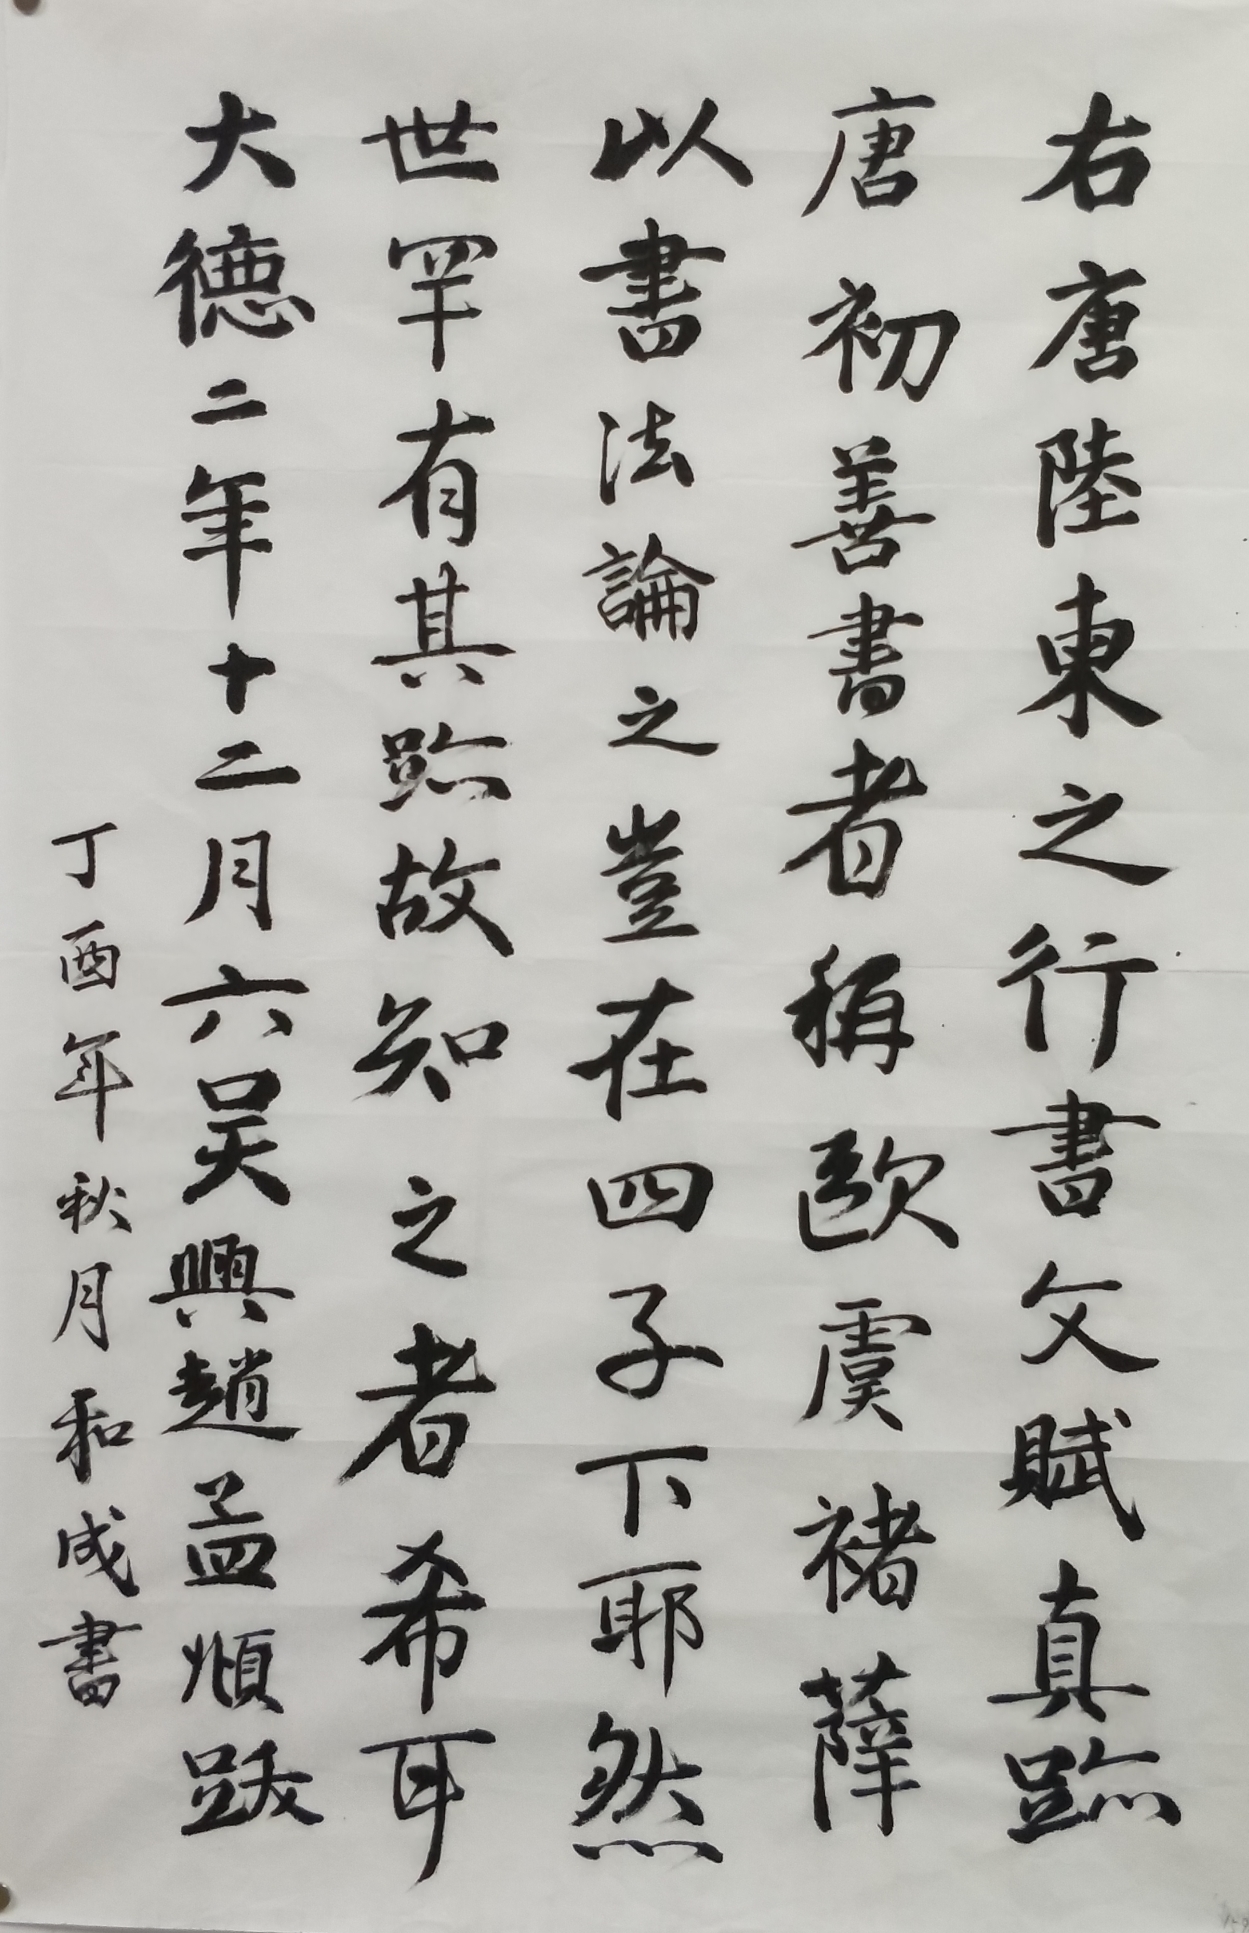 右唐陸柬之行書文賦真跡
唐初善書者稱歐虞褚薛
以書法論之豈在四子下耶然
世罕有其跡故知之者希耳
大德二年十二月六吴興趙孟順跋
丁酉年秋月和成書